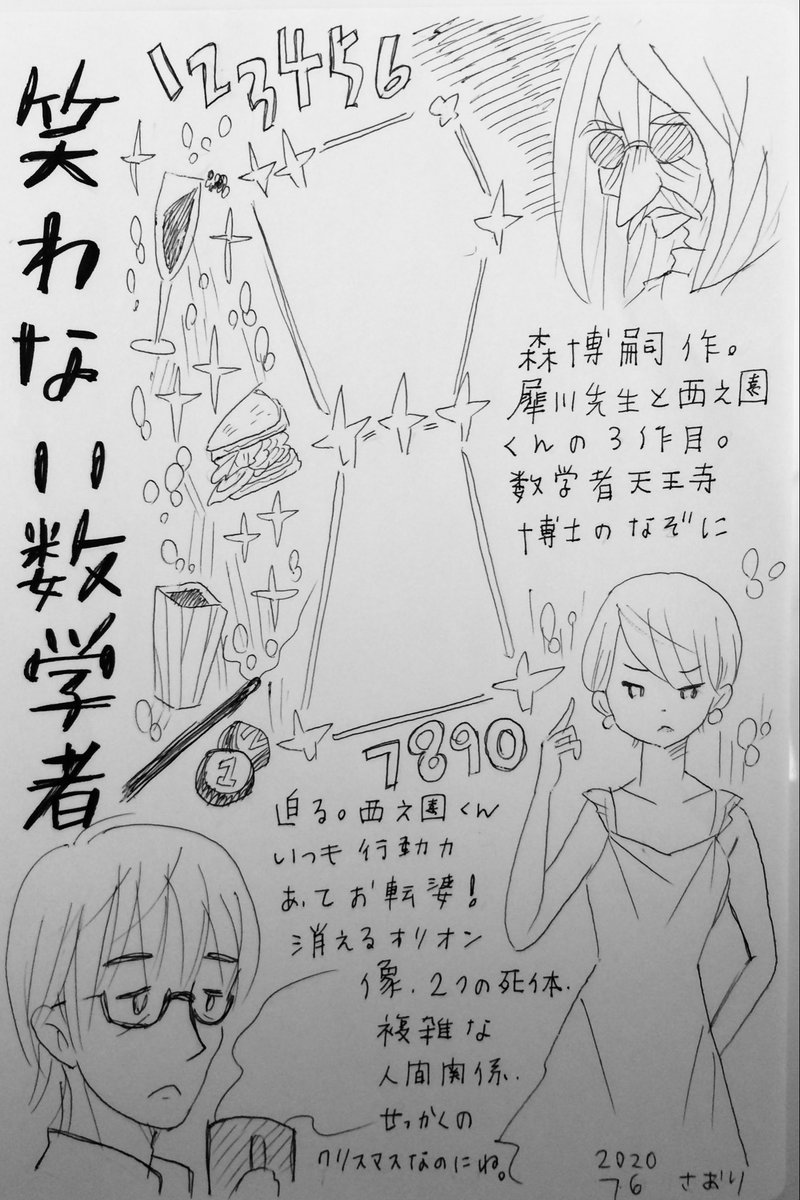 笑わない数学者
123456
森博嗣作。
犀川先生と西之園
くんの3作目。
数学者天王寺
博士のなぞに
7890
1
迫る。西之園くん
いつも行動力
あってお転婆!
消えるオリオン
像.2つの死体.
複雑な
人間関係.
せっかくの
クリスマスなのにね。
2020
7 6 さおり